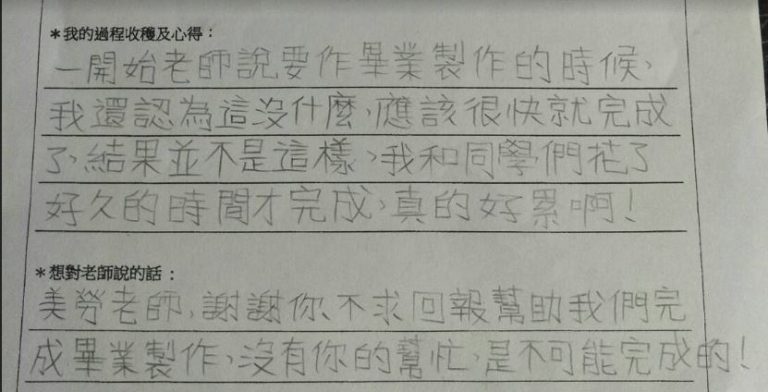 *我的過程收穫及心得：
一開始老師說要作畢業製作的時候、
我還認為這沒什麼,應該很快就完成
了,結果並不是這樣,我和同學們花了
好久的時間才完成,真的好累啊!
*想對老師說的話：
美勞老師,謝謝你、不求回報幫助我們完
成畢業製作,沒有你的幫忙,是不可能完成的!